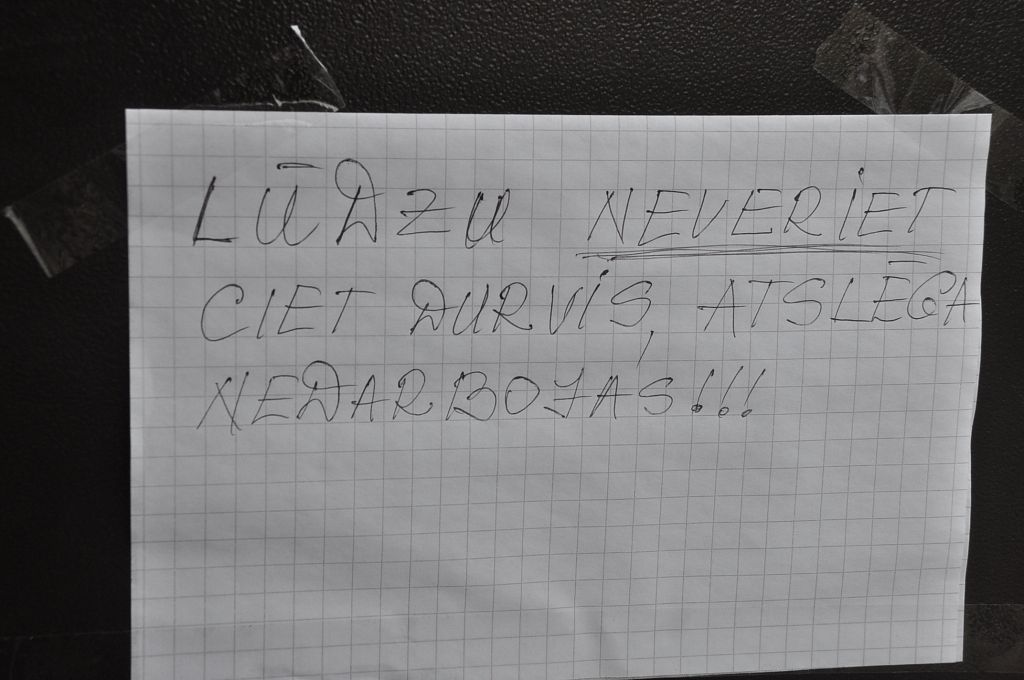 LŪDZU NEVERIET
CIET DURVIS, ATSLĒGA
NEDARBOJAS!!!